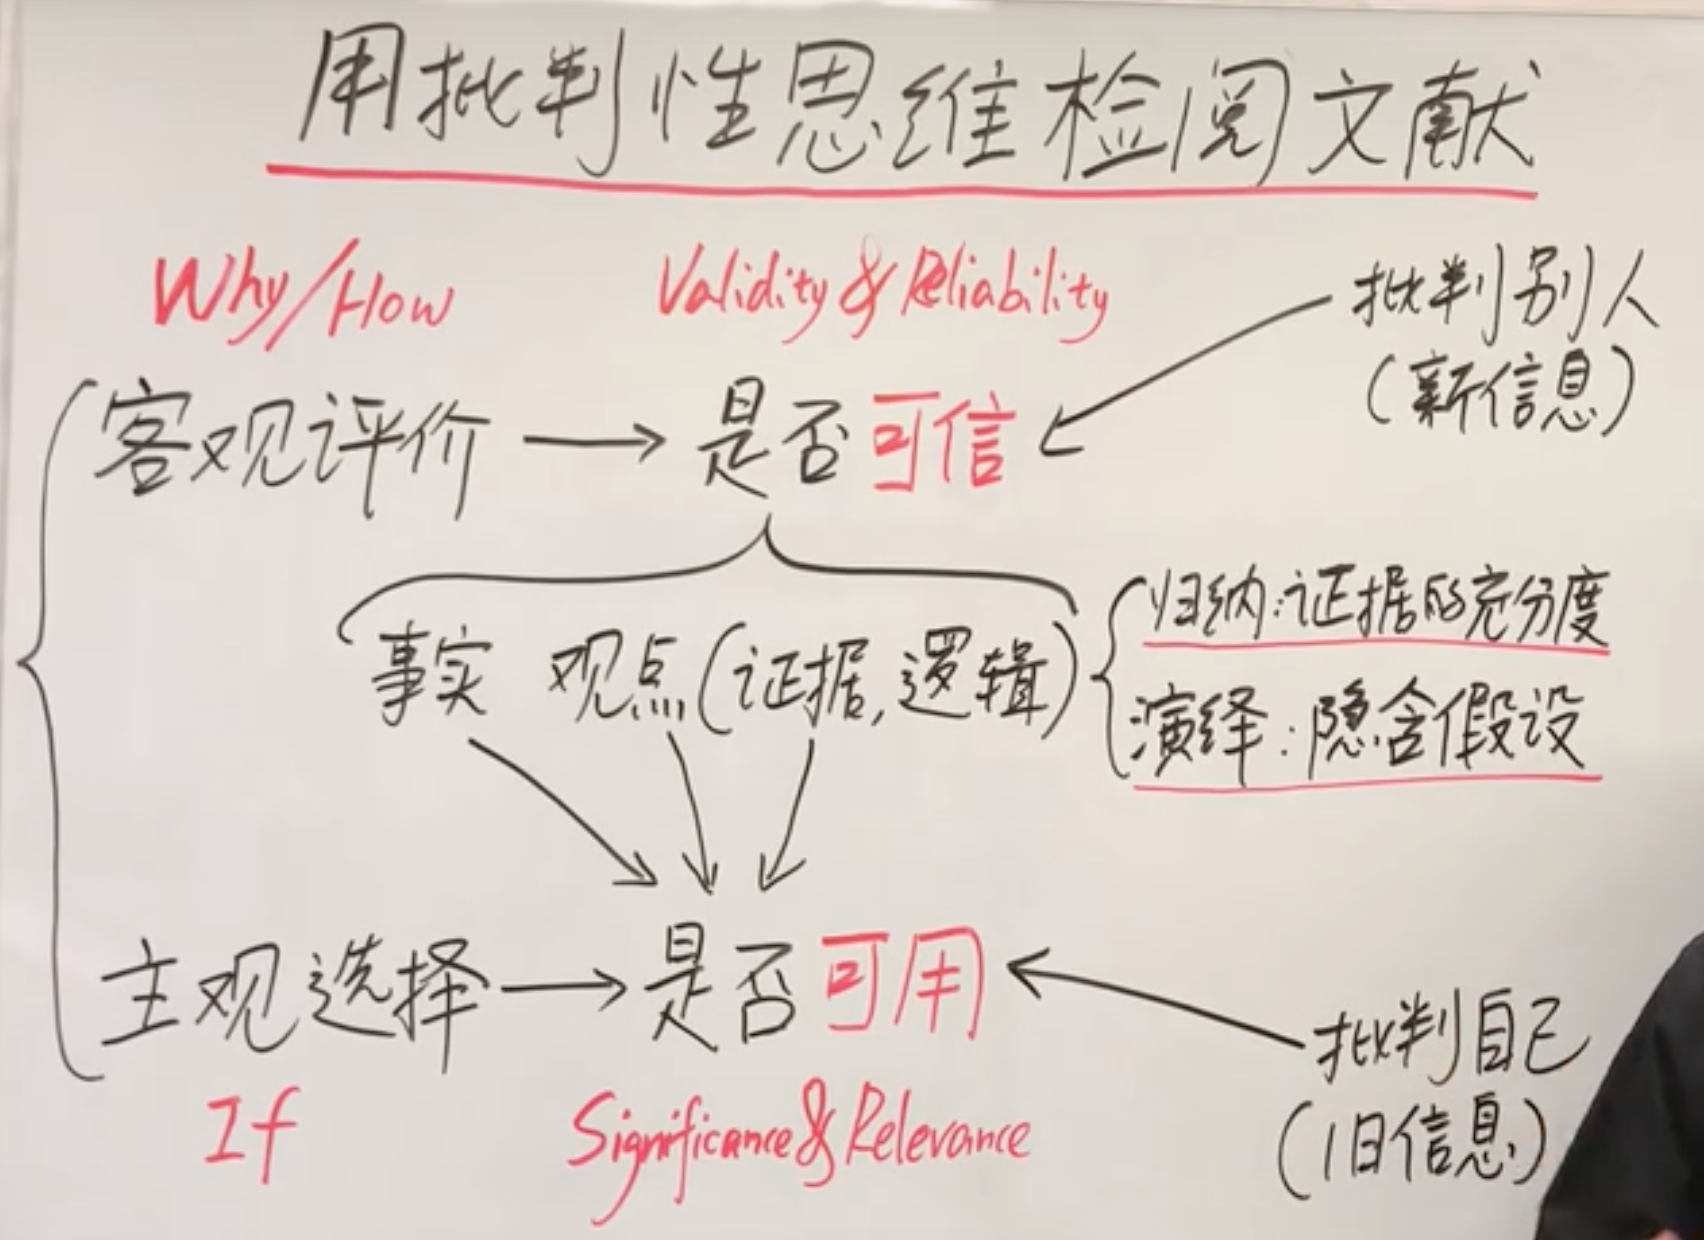 用批判性思维检阅文献
Why/How
Validity & Reliability
批判别人
(新信息)
客观评价 → 是否可信
事实 观点(证据,逻辑)
归纳:证据的充分度
演绎:隐含假设
主观选择 → 是否可用
批判自己
(旧信息)
If
Significance & Relevance